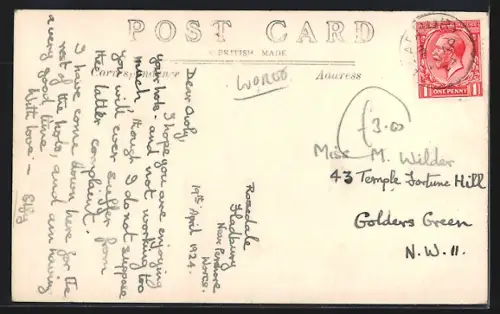 POST CARD
BRITISH MADE
Correspondence
Address
WORCS
£3.00
ONE PENNY
Rosedale
Fladbury
Near Pershore
Worcs.
19th April 1924.
Dear
I hope you are enjoying
your hols - and not working too
much though I do not suppose
you will ever suffer from
the latter complaint.
I have come down here for the
rest of the hols, and am having
a very good time.
With love -
Miss M. Wilder
43 Temple Fortune Hill
Golders Green
N.W. 11.